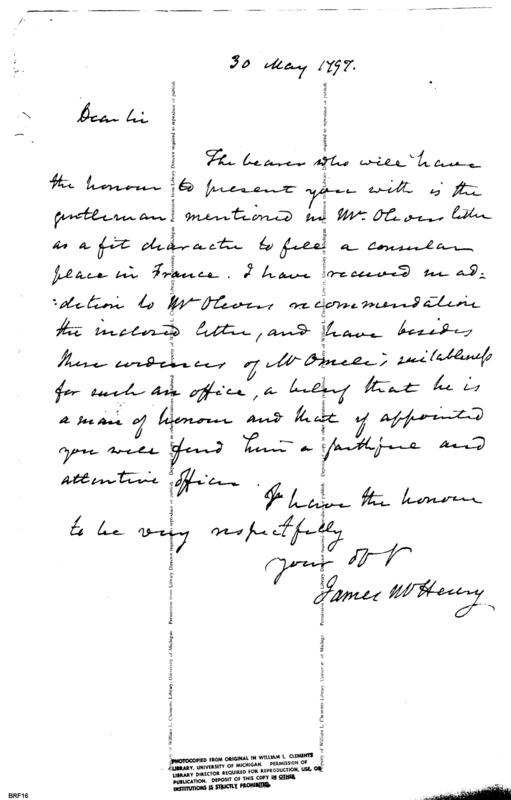 30 May 1797.
Dear Sir
The bearer who will have
the honour to present you with is the
gentleman mentioned in Mr. Olivers letter
as a fit character to fill a consular
place in France. I have received in ad:
:dition to Mr Olivers recommendation
the inclosed letter, and have besides
these evidences of Mr Omeli's suitableness
for such an office, a belief that he is
a man of honour and that if appointed
you will find him a faithful and
attentive officer.
I have the honour
to be very respectfully
your ob t
James McHenry
PHOTOCOPIED FROM ORIGINAL IN WILLIAM L. CLEMENTS
LIBRARY, UNIVERSITY OF MICHIGAN. PERMISSION OF
LIBRARY DIRECTOR REQUIRED FOR REPRODUCTION, USE, OR
PUBLICATION. DEPOSIT OF THIS COPY IN OTHER
INSTITUTIONS IS STRICTLY PROHIBITED.
BRF16